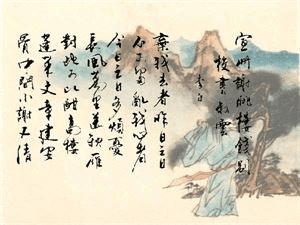 宣州谢朓楼饯别
校书叔云
李白
弃我去者昨日之日
不可留乱我心者
今日之日多烦忧
长风万里送秋雁
对此可以酣高楼
蓬莱文章建安
骨中间小谢又清